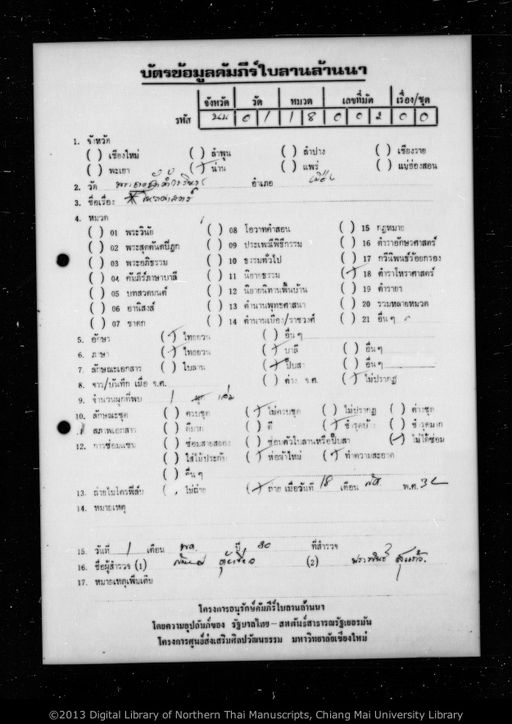 บัตรข้อมูลคัมภีร์ใบลานล้านนา
จังหวัด วัด หมวด เลขที่มัด เรื่อง/ชุด
รหัส นน 0 1 1 8 0 0 2 0 0
1. จังหวัด
( ) เชียงใหม่ ( ) ลำพูน ( ) ลำปาง ( ) เชียงราย
( ) พะเยา (/) น่าน ( ) แพร่ ( ) แม่ฮ่องสอน
2. วัด พระธาตุช้างค้ำวรวิหาร อำเภอ เมือง
3. ชื่อเรื่อง
4. หมวด
( ) 01 พระวินัย ( ) 08 โอวาทคำสอน ( ) 15 กฎหมาย
( ) 02 พระสุตตันตปิฎก ( ) 09 ประเพณีพิธีกรรม ( ) 16 ตำราอักษรศาสตร์
( ) 03 พระอภิธรรม ( ) 10 ธรรมทั่วไป ( ) 17 กวีนิพนธ์ร้อยกรอง
( ) 04 คัมภีร์ภาษาบาลี ( ) 11 นิยายธรรม (/) 18 ตำราโหราศาสตร์
( ) 05 บทสวดมนต์ ( ) 12 นิยายนิทานพื้นบ้าน ( ) 19 ตำรายา
( ) 06 อานิสงส์ ( ) 13 ตำนานพุทธศาสนา ( ) 20 รวมหลายหมวด
( ) 07 ชาดก ( ) 14 ตำนานเมือง/ราชวงศ์ ( ) 21 อื่น ๆ
5. อักษร (/) ไทยยวน ( ) อื่น ๆ
6. ภาษา (/) ไทยยวน (/) บาลี ( ) อื่น ๆ
7. ลักษณะเอกสาร ( ) ใบลาน (/) ปั๊บสา ( ) อื่น ๆ
8. จาร/บันทึก เมื่อ จ.ศ. ( ) ค่าง จ.ศ. (/) ไม่ปรากฏ
9. จำนวนผูกที่พบ 1 เล่ม
10. ลักษณะชุด ( ) ครบชุด (/) ไม่ครบชุด ( ) ไม่ปรากฏ ( ) ค่าบชุด
11. สภาพเอกสาร ( ) ดีมาก ( ) ดี (/) ชำรุด ( ) ชำรุดมาก
12. การซ่อมแซม ( ) ซ่อมสายสยอง ( ) ซ่อมตัวใบลานหรือปั๊บสา (/) ไม่ได้ซ่อม
( ) ใส่ไม้ประกับ (/) ห่อผ้าใหม่ (/) ทำความสะอาด
( ) อื่น ๆ
13. ถ่ายไมโครฟิล์ม ( ) ไม่ถ่าย (/) ถ่าย เมื่อวันที่ 18 เดือน พ.ศ.
14. หมายเหตุ
15. วันที่ 1 เดือน พค. ปี 30 ที่สำรวจ
16. ชื่อผู้สำรวจ (1) (2)
17. หมายเหตุเพิ่มเติม
โครงการอนุรักษ์คัมภีร์ใบลานล้านนา
โดยความอุปถัมภ์ของ รัฐบาลไทย-สหพันธ์สาธารณรัฐเยอรมัน
โครงการศูนย์ส่งเสริมศิลปวัฒนธรรม มหาวิทยาลัยเชียงใหม่
©2013 Digital Library of Northern Thai Manuscripts, Chiang Mai University Library